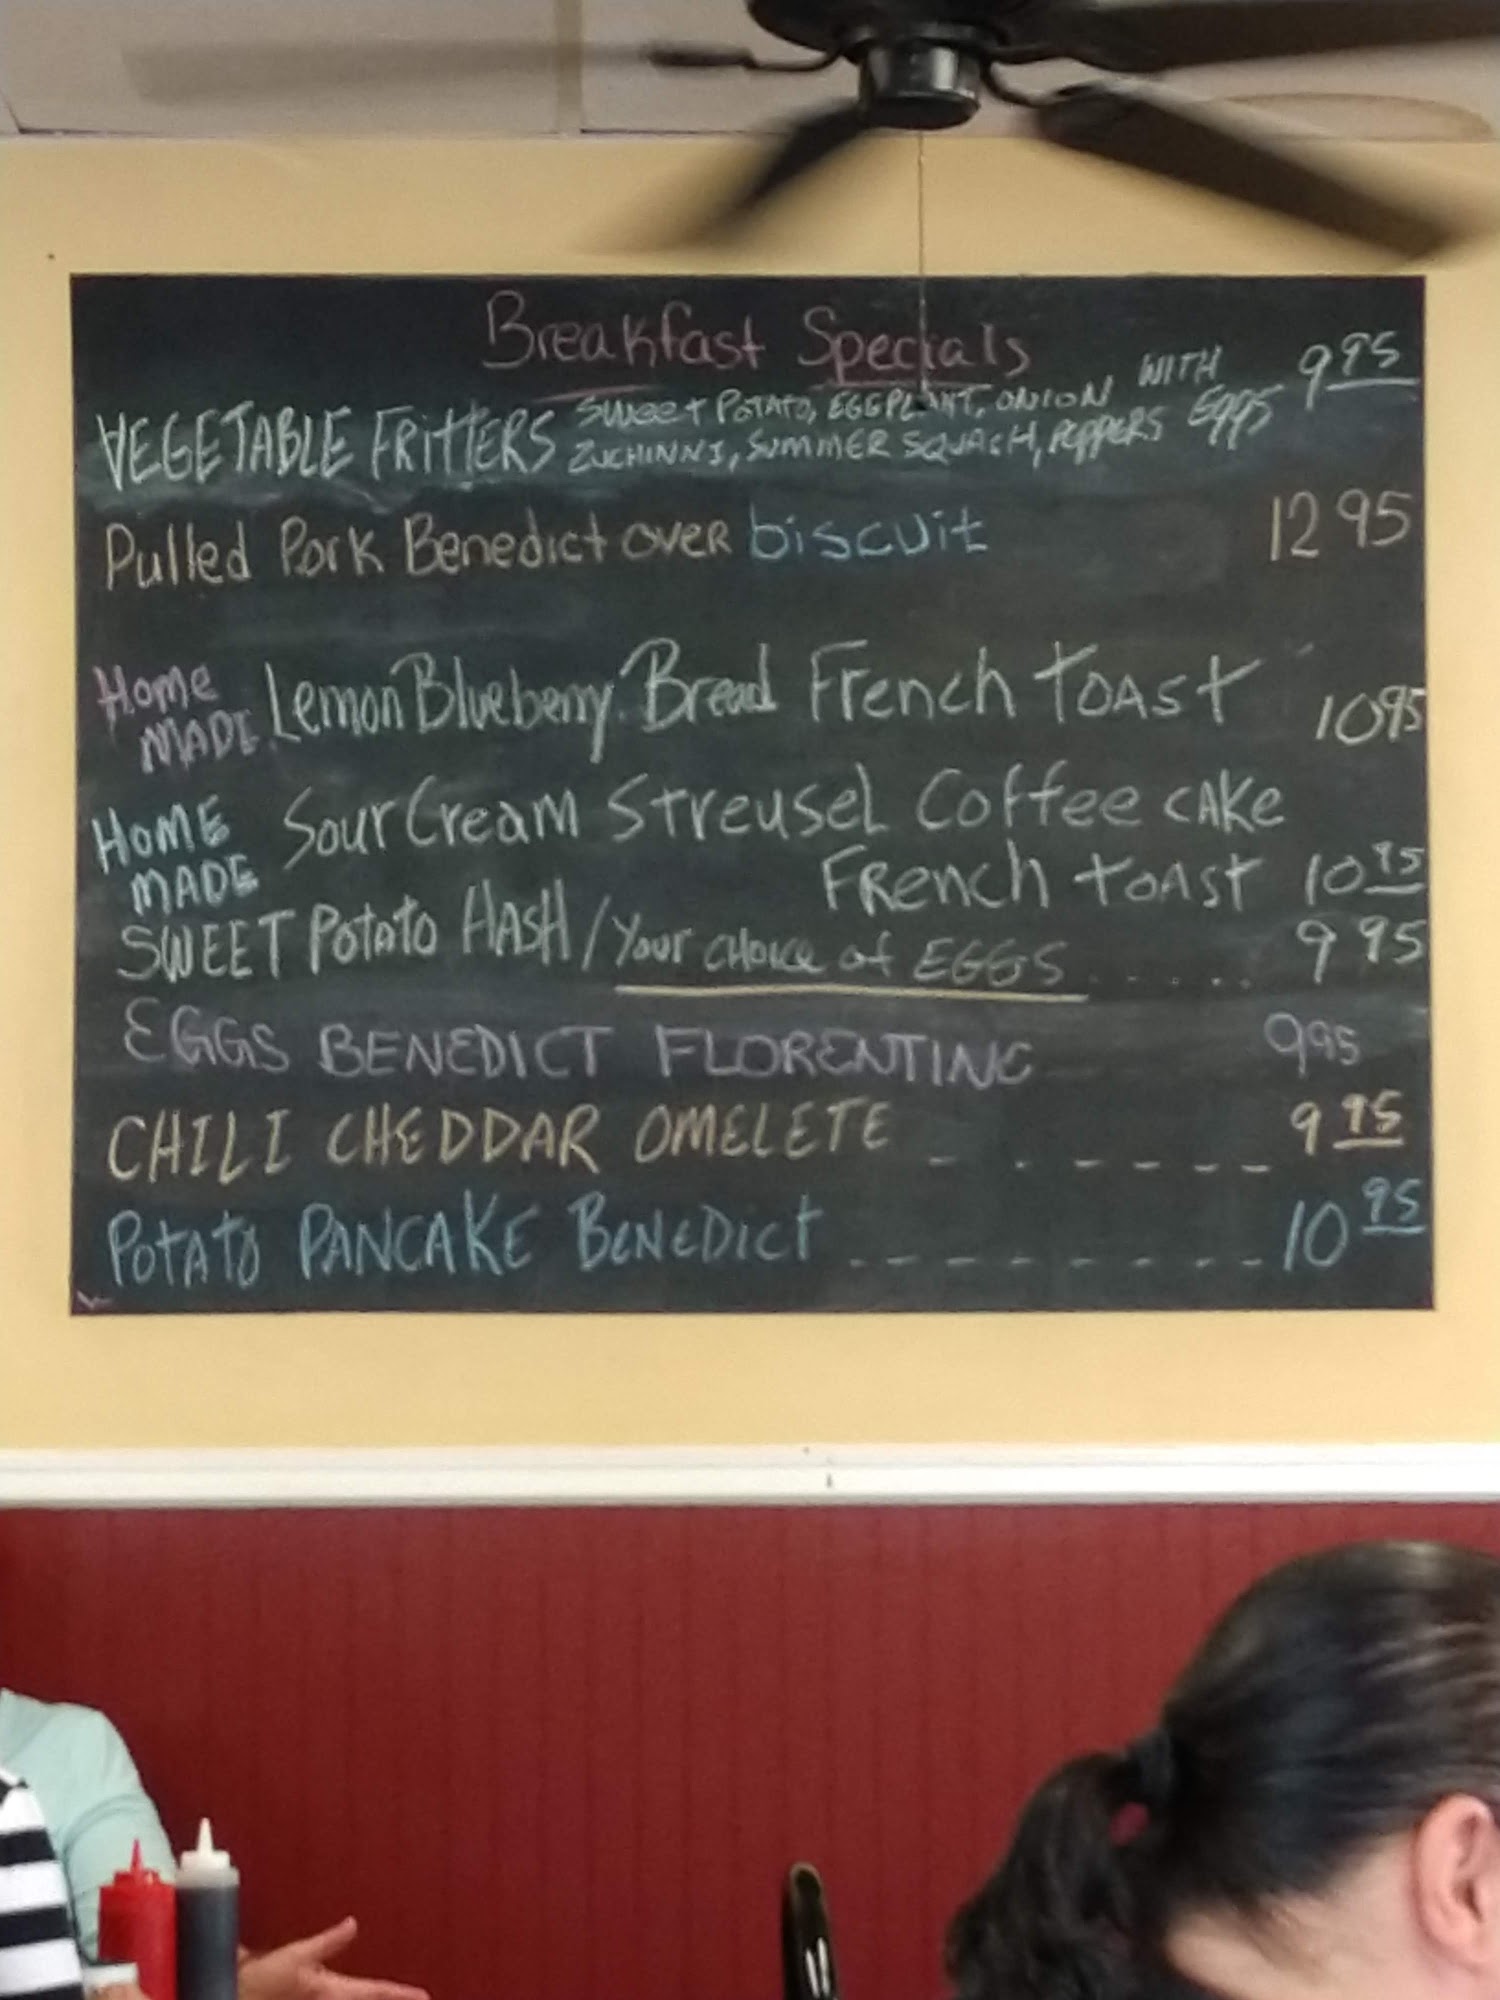 Breakfast Specials
VEGETABLE FRITTERS SWEET POTATO, EGGPLANT, ONION WITH 9 95
ZUCHINNI, SUMMER SQUASH, PEPPERS EGGS
Pulled Pork Benedict over biscuit 12 95
Home MADE Lemon Blueberry Bread French TOAST 10 95
HOME MADE Sour Cream Streusel Coffee CAKE
French TOAST 10 95
SWEET POTATO HASH / Your CHOICE of EGGS ...... 9 95
EGGS BENEDICT FLORENTINE 9 95
CHILI CHEDDAR OMELETE _ . _ _ _ _ _ 9 95
POTATO PANCAKE BENEDICT _ _ _ _ _ _ _ _ _ 10 95